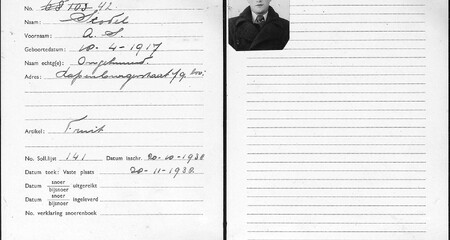 No. 42
Naam:
Voornaam: A. S.
Geboortedatum: 10-4-1917
Naam echtg(e): Ongehuwd.
Adres: Lapenburgerstraat 19 bov.
Artikel: Fruit
No. Soll.lijst 141 Datum inschr. 20-10-1938
Datum toek: Vaste plaats 20-11-1938
Datum snoer/bijsnoer uitgereikt
Datum snoer/bijsnoer ingeleverd
No. verklaring snoerenboek